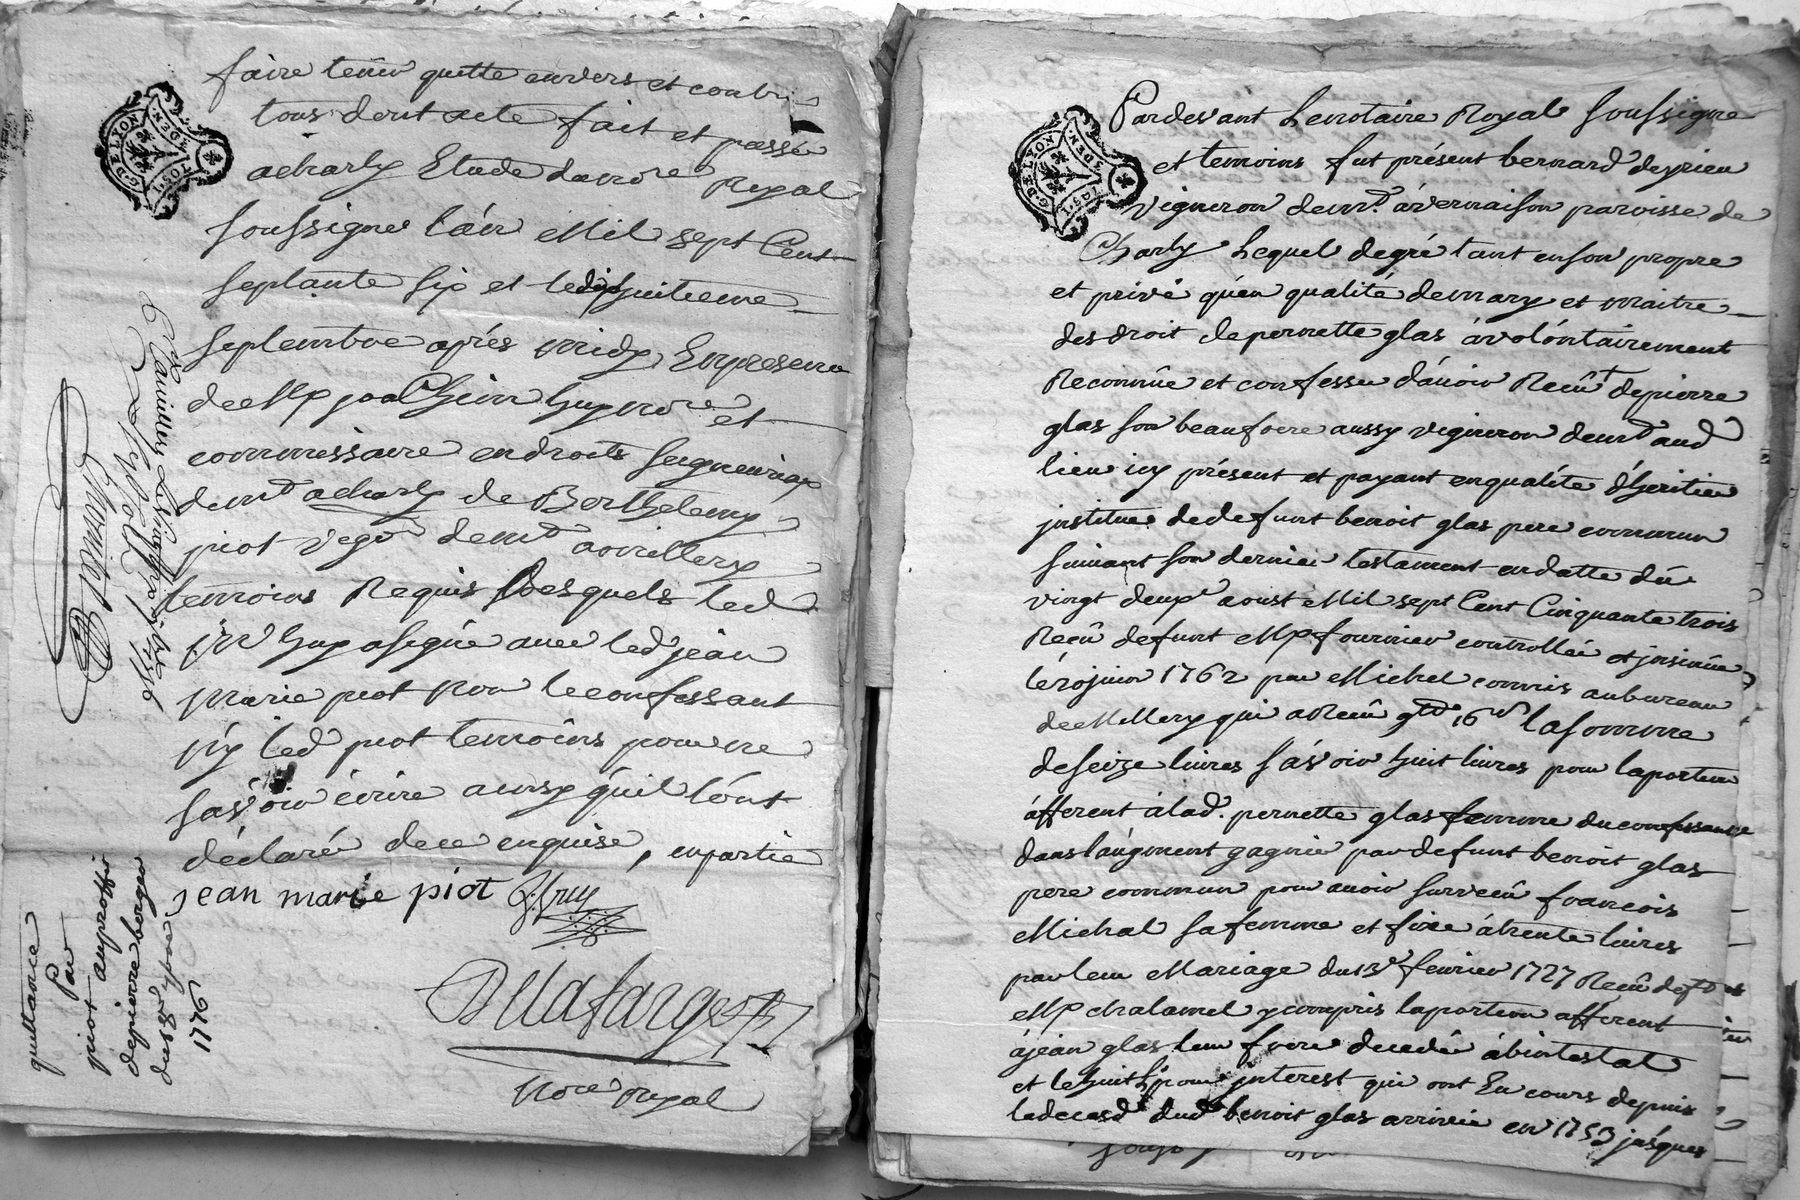 faire tenir quitte envers et contre
tous dont acte fait et passé
acharly Etude dunore Royal
soussigné l'án Mil sept Cent
septante six et ledixhuitieme
septembre aprés midy, Enpresence
deMe joachim huynore et
commissaire endroits seigneuriaux
demt acharly de Berthelemy
piot vigon demt amillery
temoins Requis desquels led
huy asigné avec led jean
marie piot Non leconfessant
ny led piot temoins pour ne
sávoir écrire ainsy qúil l'ónt
déclaré dece enquise, enpartie
jean marie piot J. huy
Delafarge
Nore royal
quittance
Par
piot auproffit
depierre berger
du 18 7bre
1776
G. DE LYON
Pardevant Lenotaire Royal soussigné
et temoins fut présent bernard deyrieu
vigneron demt ávernaison parroisse de
Charly Lequel degré tant enson propre
et privé qúen qualité demary et maitre
desdroit depernette glas ávolóntairement
Reconnûe et confessé d'ávoir Reçû depierre
glas son beaufrere aussy vigneron demt aud
lieu icy présent et payant enqualité d'héritier
institué dedefunt benoit glas pere commun
suivant son dernier testament endatte dû
vingt deux aoust Mil sept Cent Cinquante trois
Reçû defunt Me fournier controllée et insinuée
le 20 juin 1762 par Michel commis aubureau
deMillery qui aReçû lasomme
deseize livres sávoir huit livres pour laportion
áfferent álad. pernette glas femme duconfessant
dans laúgment gagnée pardefunt benoit glas
pere commun pour avoir survecû françois
Michal safemme et fixée átrente livres
parleur Mariage du 13e fevrier 1727 Reçû deft
Me chalamel ycompris laportion afferent
ájean glas leur frere decedé ábintestat
et lehuit pour interest qui ont Eu cours depuis
ledeceds dud benoit glas arrivée en 1753 jusques
G. DE LYON